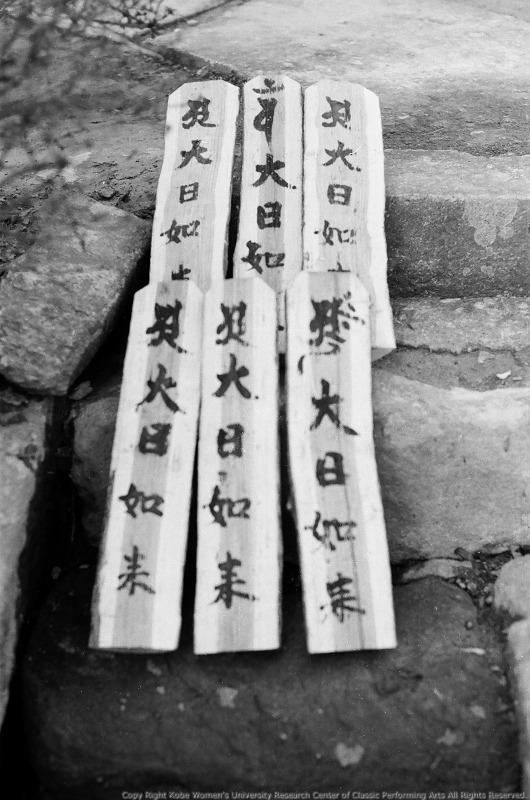 大日如
大日如
大日如
大日如来
大日如来
大日如来
Copy Right Kobe Women's University Research Center of Classic Performing Arts All Rights Reserved.